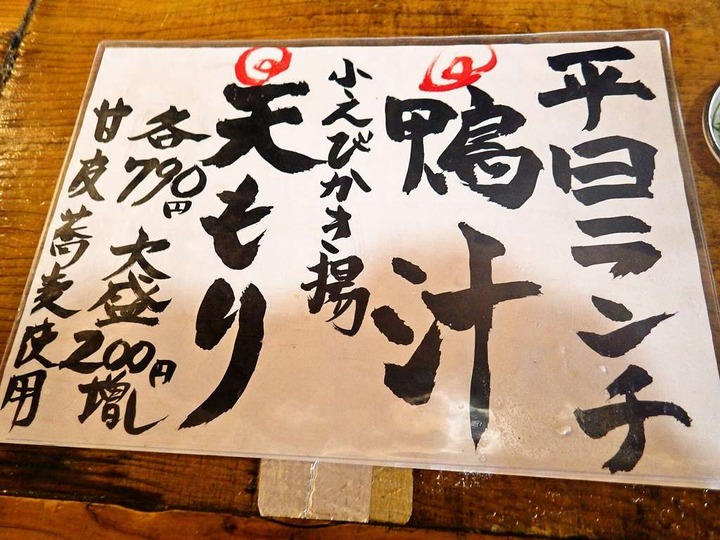 平日ランチ
鴨汁
小えびかき揚
天もり
各790円
大盛200円増し
甘皮蕎麦使用